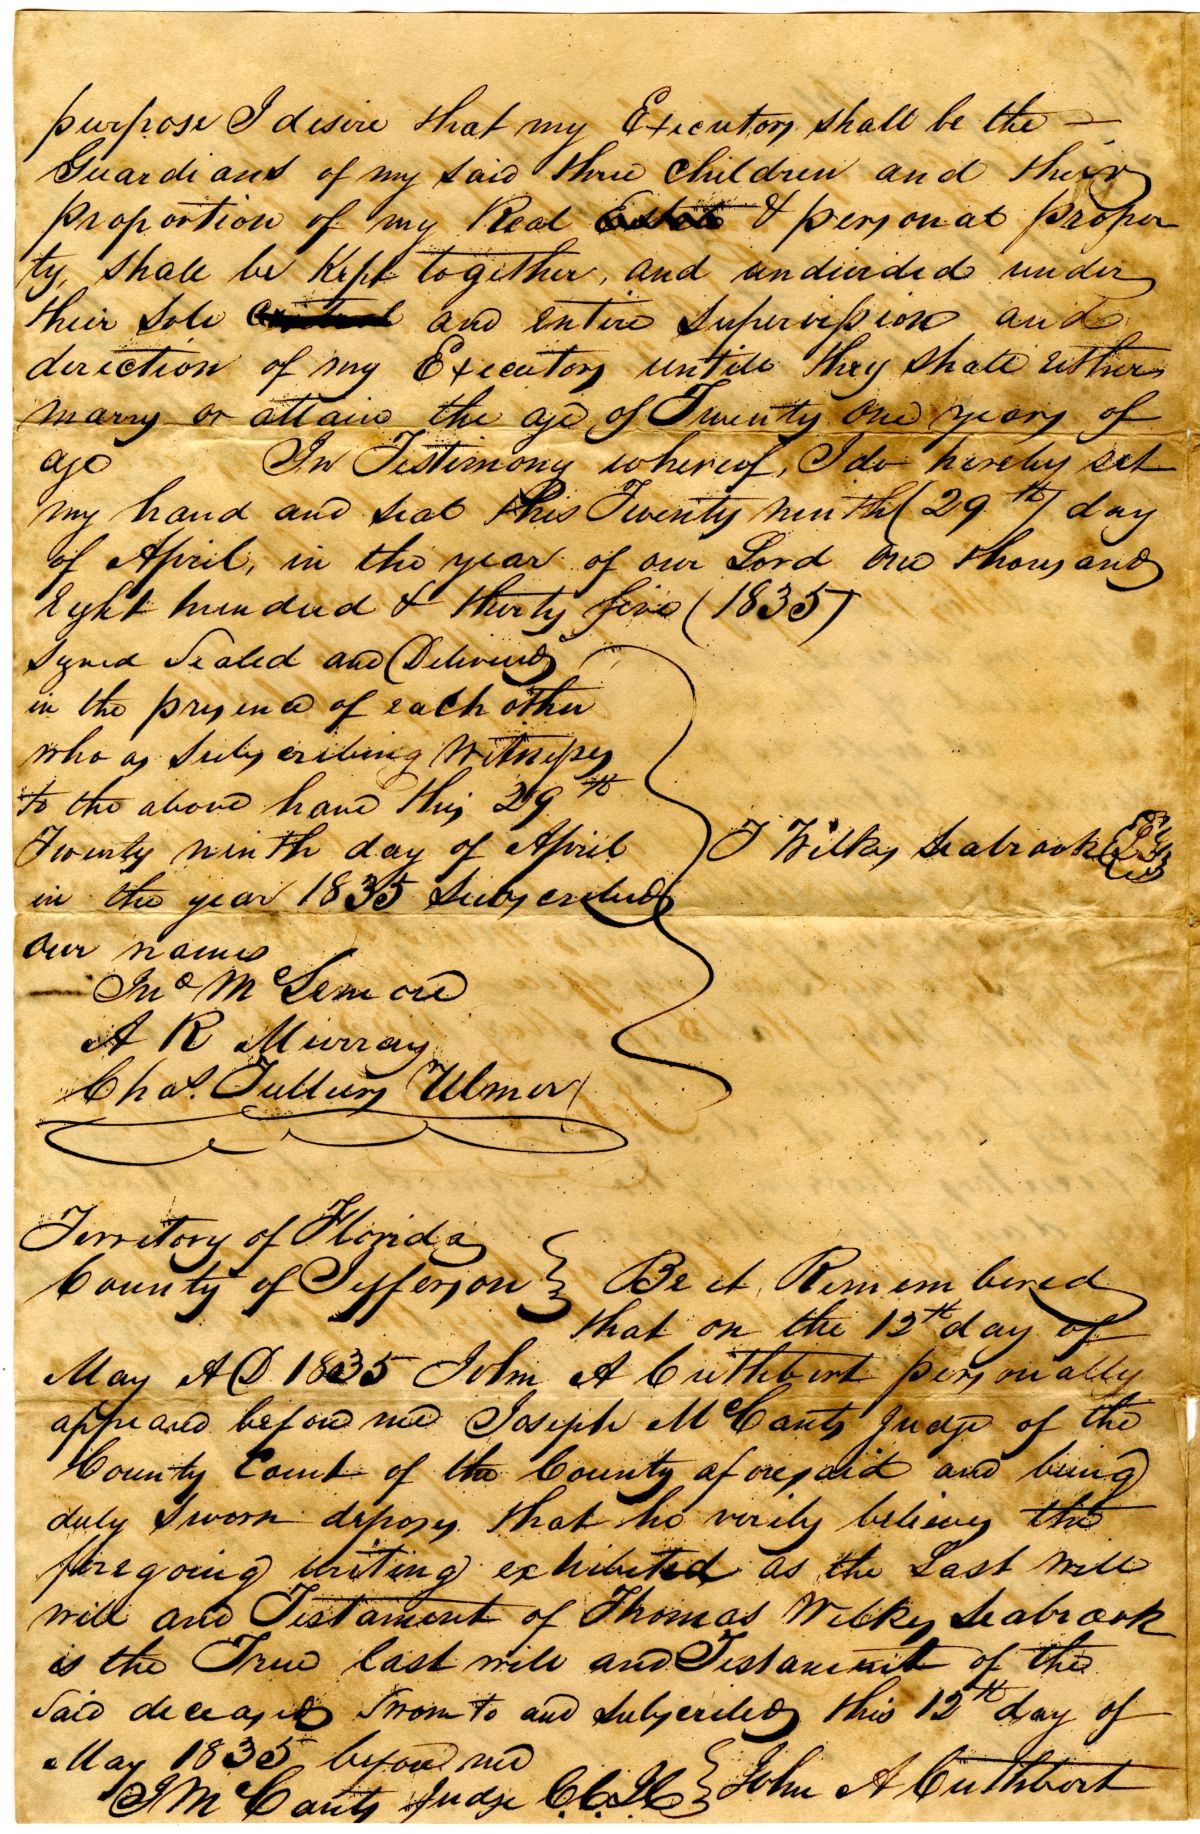 purpose I desire that my Executors shall be the —
Guardians of my said three children and their
proportion of my Real Estate & personal proper
ty, shall be kept together, and undivided under
their sole control and entire supervision and
direction of my Executors untill they shall either
marry or attain the age of Twenty one years of
age In Testimony whereof, I do hereby set
my hand and seal this Twenty ninth (29th) day
of April, in the year of our Lord one thousand
Eight hundred & thirty five (1835)
Signed Sealed and Delivered
in the presence of each other
who as subscribing Witnesses
to the above have this 29th
Twenty ninth day of April
in the year 1835 Subscribed
our names
T Wilkes Seabrook LS
Jno McLemore
A R Murray
Chas. Tullius Ulmer
Territory of Florida
County of Jefferson } Be it Remembered
that on the 12th day of
May A D 1835 John A Cuthbert personally
appeared before me Joseph McCants Judge of the
County Court of the County aforesaid and being
duly sworn deposes that he verily believes the
foregoing writing exhibited as the Last will
will and Testament of Thomas Wilkes Seabrook
is the True last will and Testament of the
said deceased Sworn to and subscribed this 12th day of
May 1835 before me
J McCants Judge C.C.J.C } John A Cuthbert